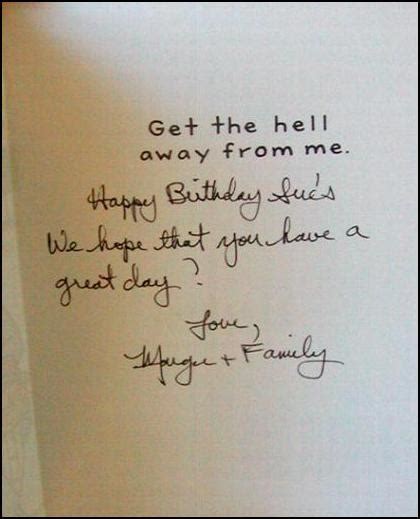 Get the hell
away from me.
Happy Birthday Sue's
We hope that you have a
great day?
Love,
+ Family